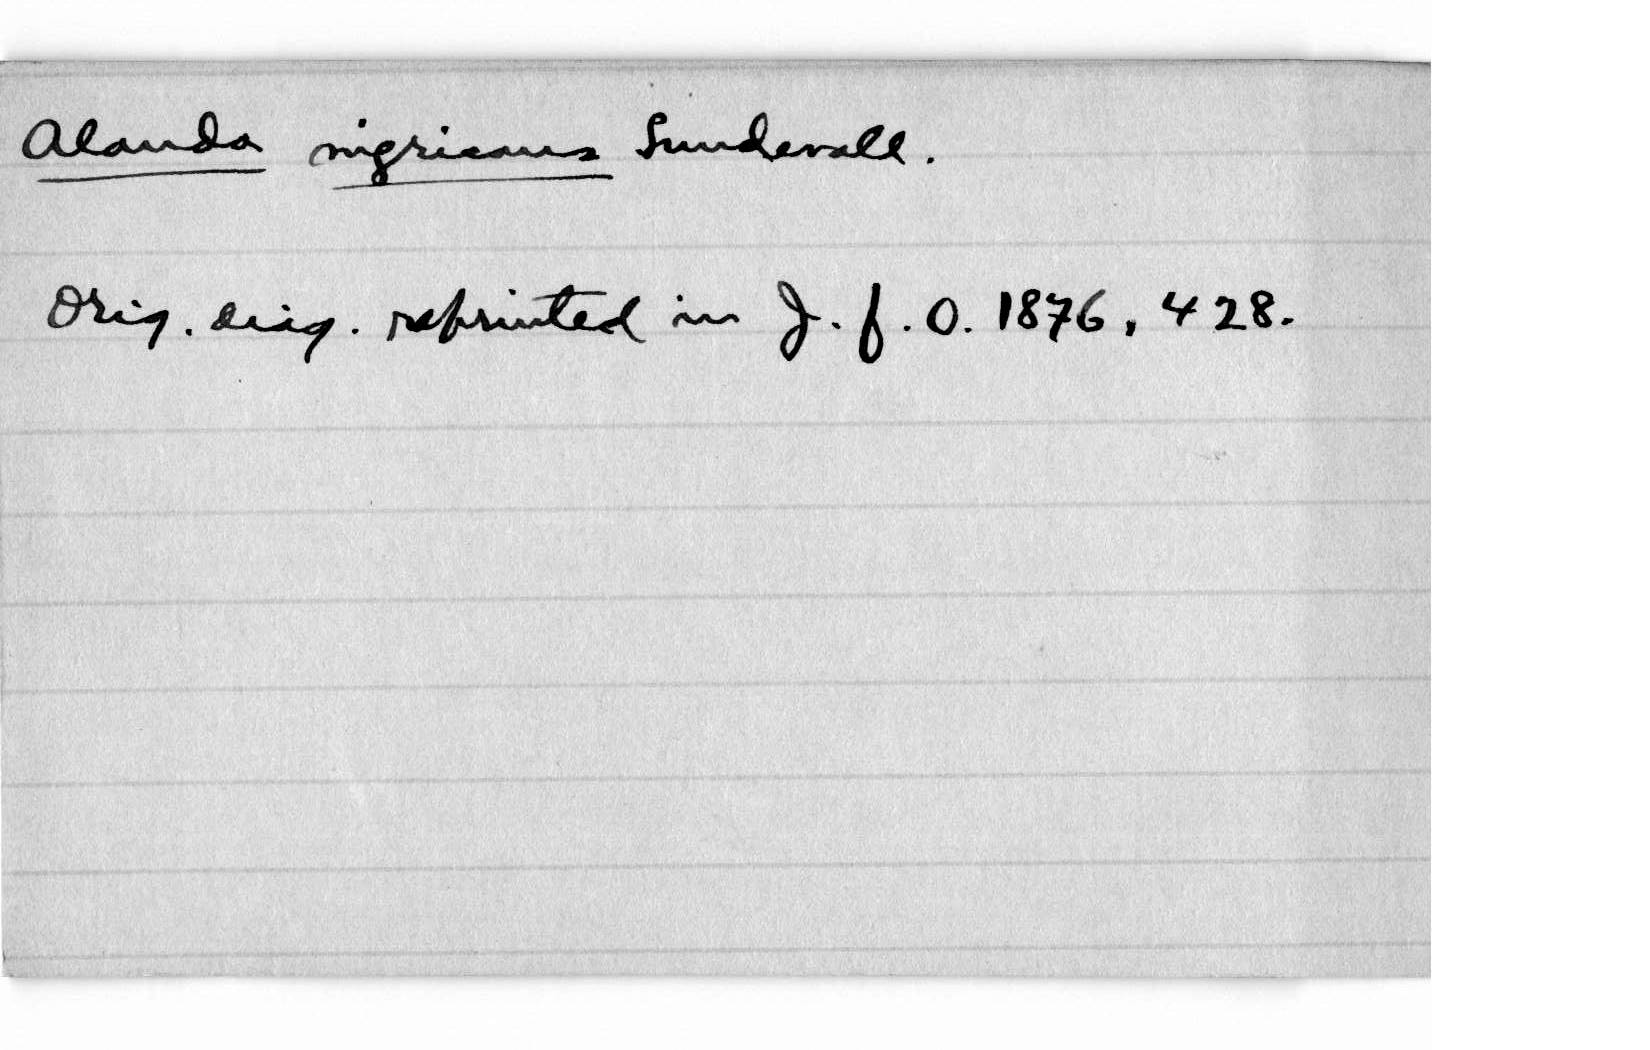 Alauda nigricans Sundevall.
Orig. diag. reprinted in J. f. O. 1876, 428.